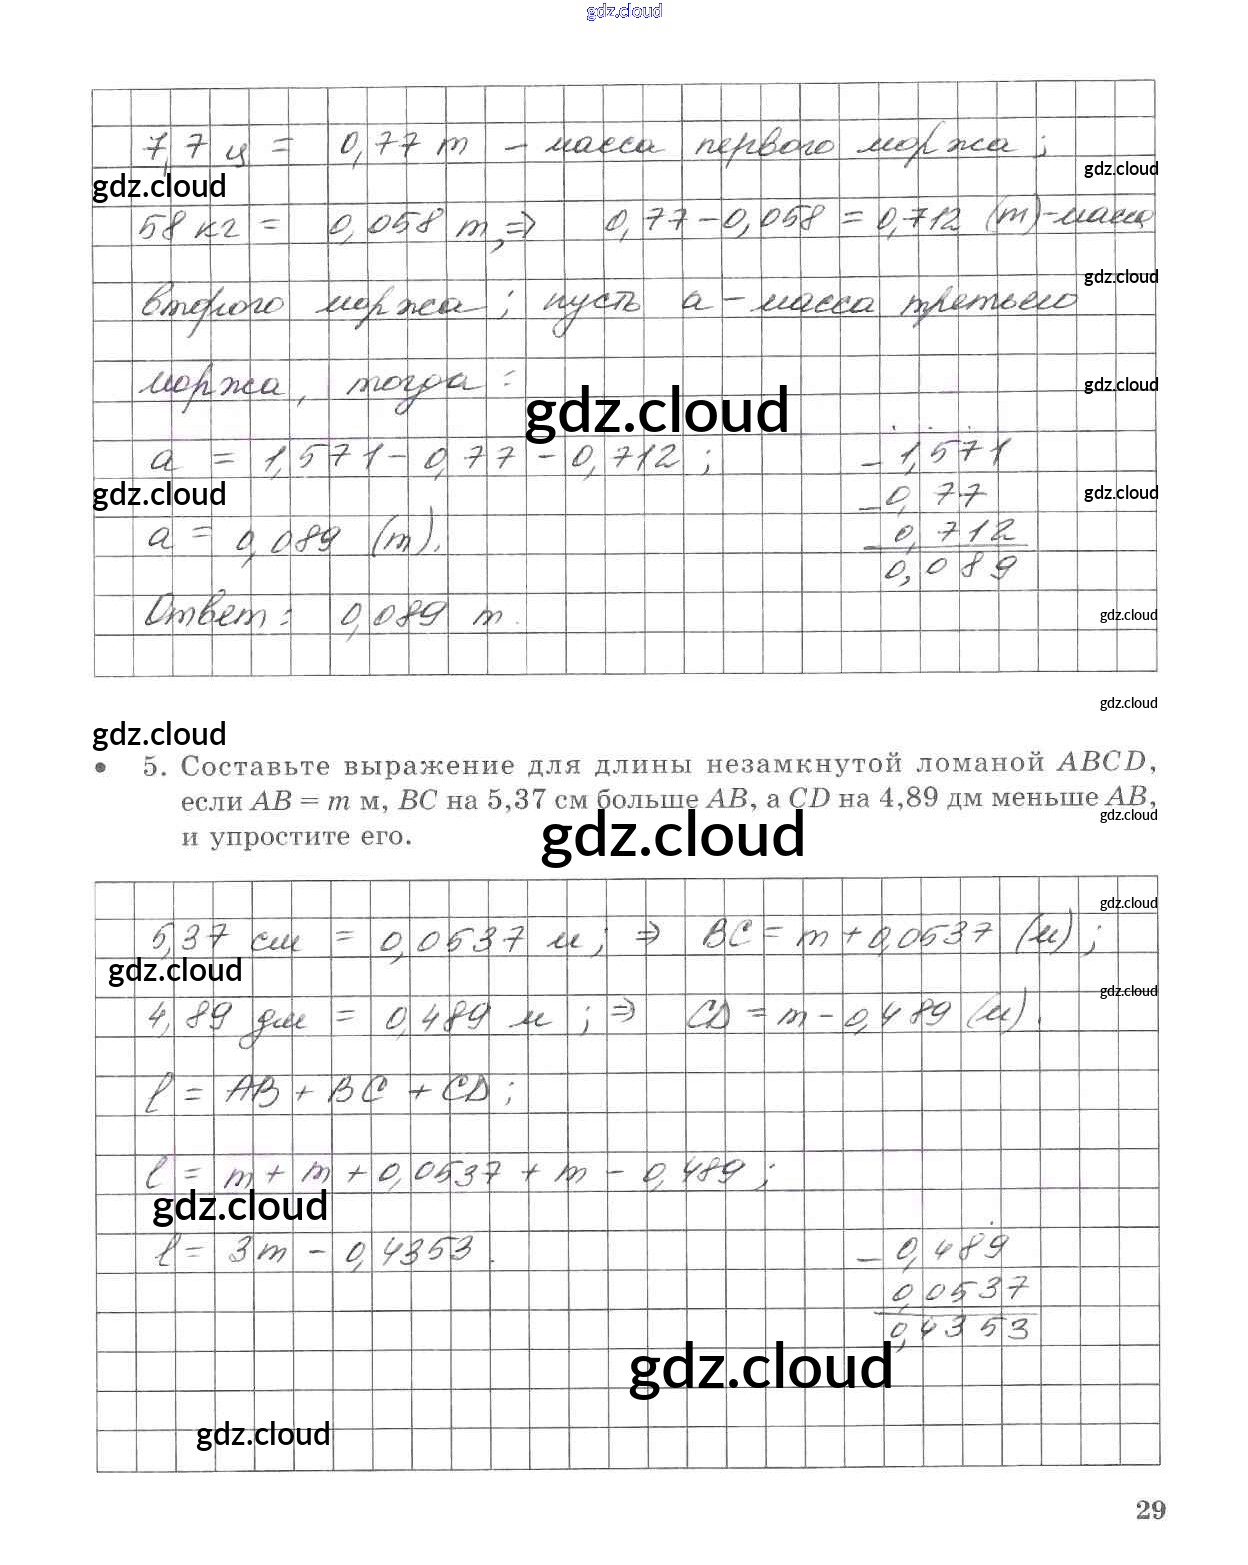 gdz.cloud
7,7 ц = 0,77 т - масса первого моржа;
gdz.cloud
gdz.cloud
58 кг = 0,058 т, ⇒ 0,77 - 0,058 = 0,712 (т) - масса
gdz.cloud
второго моржа; пусть a - масса третьего
моржа, тогда:
gdz.cloud
gdz.cloud
a = 1,571 - 0,77 - 0,712;
- 1,571
gdz.cloud
- 0,77
gdz.cloud
a = 0,089 (т).
- 0,712
0,089
Ответ: 0,089 т.
gdz.cloud
gdz.cloud
gdz.cloud
• 5. Составьте выражение для длины незамкнутой ломаной ABCD,
если AB = m м, BC на 5,37 см больше AB, а CD на 4,89 дм меньше AB,
gdz.cloud
и упростите его.
gdz.cloud
gdz.cloud
5,37 см = 0,0537 м; ⇒ BC = m + 0,0537 (м);
gdz.cloud
gdz.cloud
4,89 дм = 0,489 м; ⇒ CD = m - 0,489 (м).
l = AB + BC + CD;
l = m + m + 0,0537 + m - 0,489;
gdz.cloud
l = 3m - 0,4353.
- 0,489
0,0537
0,4353
gdz.cloud
gdz.cloud
29